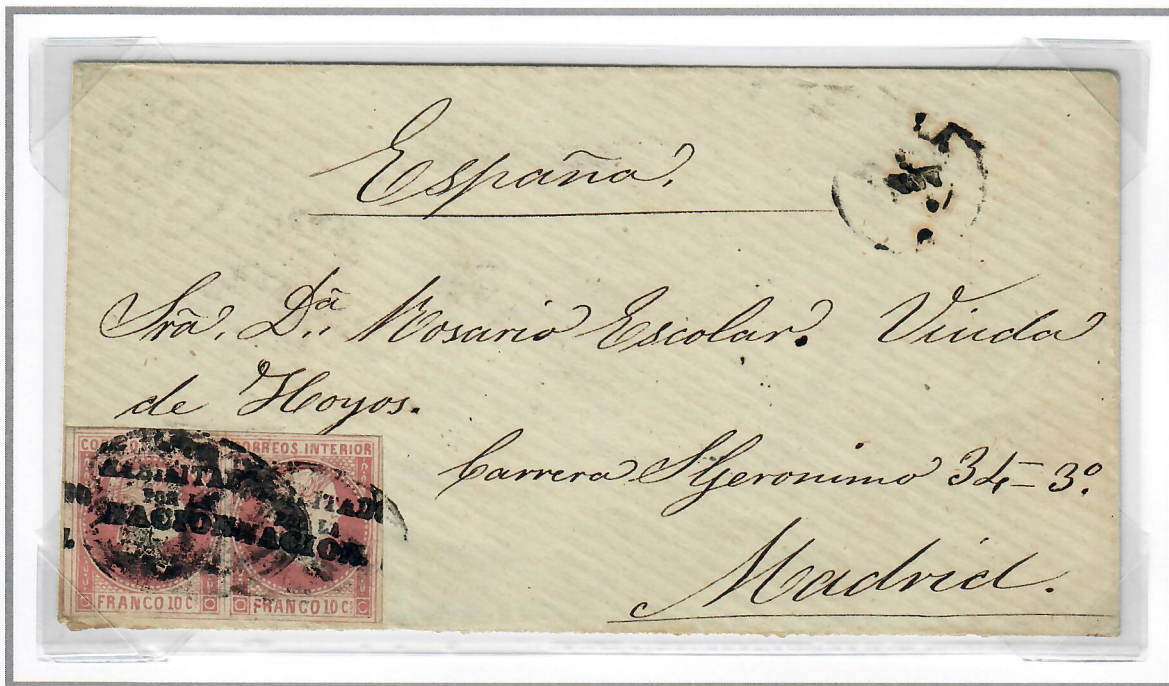 España.
Sra. Dª. Rosario Escolar. Viuda
de Hoyos.
Carrera S Geronimo 34=3º
Madrid.
CORREOS.INTERIOR
HABILITADO
POR LA
NACION
NACION
FRANCO 10 Cs
FRANCO 10 Cs